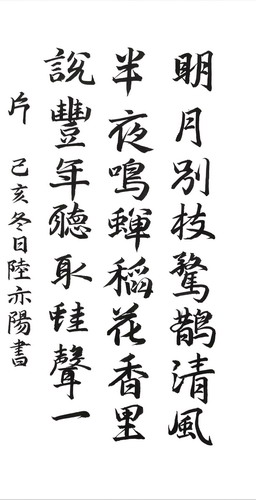 明月別枝驚鵲清風
半夜鳴蟬稻花香里
說豐年聽取蛙聲一
片
己亥冬日陸亦陽書